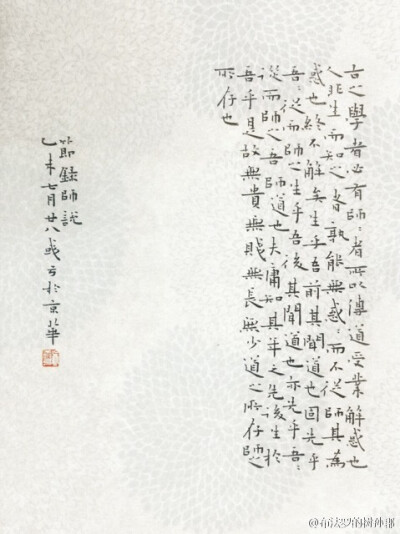 古之學者必有師：者所以傳道受業解惑也
人非生而知之者孰能無惑：而不從師其為
惑也終不解矣生乎吾前其聞道也固先乎
吾：從而師之生乎吾後其聞道也亦先乎吾：
從而師之吾師道也夫庸知其年之先後生於
吾乎是故無貴無賤無長無少道之所存師之
所存也
節錄師說
乙未七月廿八 於京華